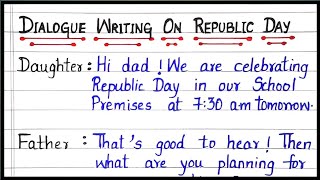 DIALOGUE WRITING ON REPUBLIC DAY
Daughter: Hi dad! We are celebrating
Republic Day in our School
Premises at 7:30 am tomorrow.
Father: That's good to hear! Then
what are you planning for